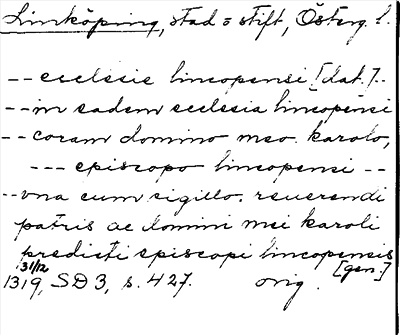 Linköping, stad o stift, Österg. l.
-- ecclesie lincopensi [dat.]..
-- in eadem ecclesia lincopensi
-- coram domino meo. karolo,
--- episcopo lincopensi --
-- vna cum sigillo. reuerendi
patris ac domini mei karoli
predicti episcopi lincopensis
[gen.]
31/12
1319, SD 3, s. 427. orig.